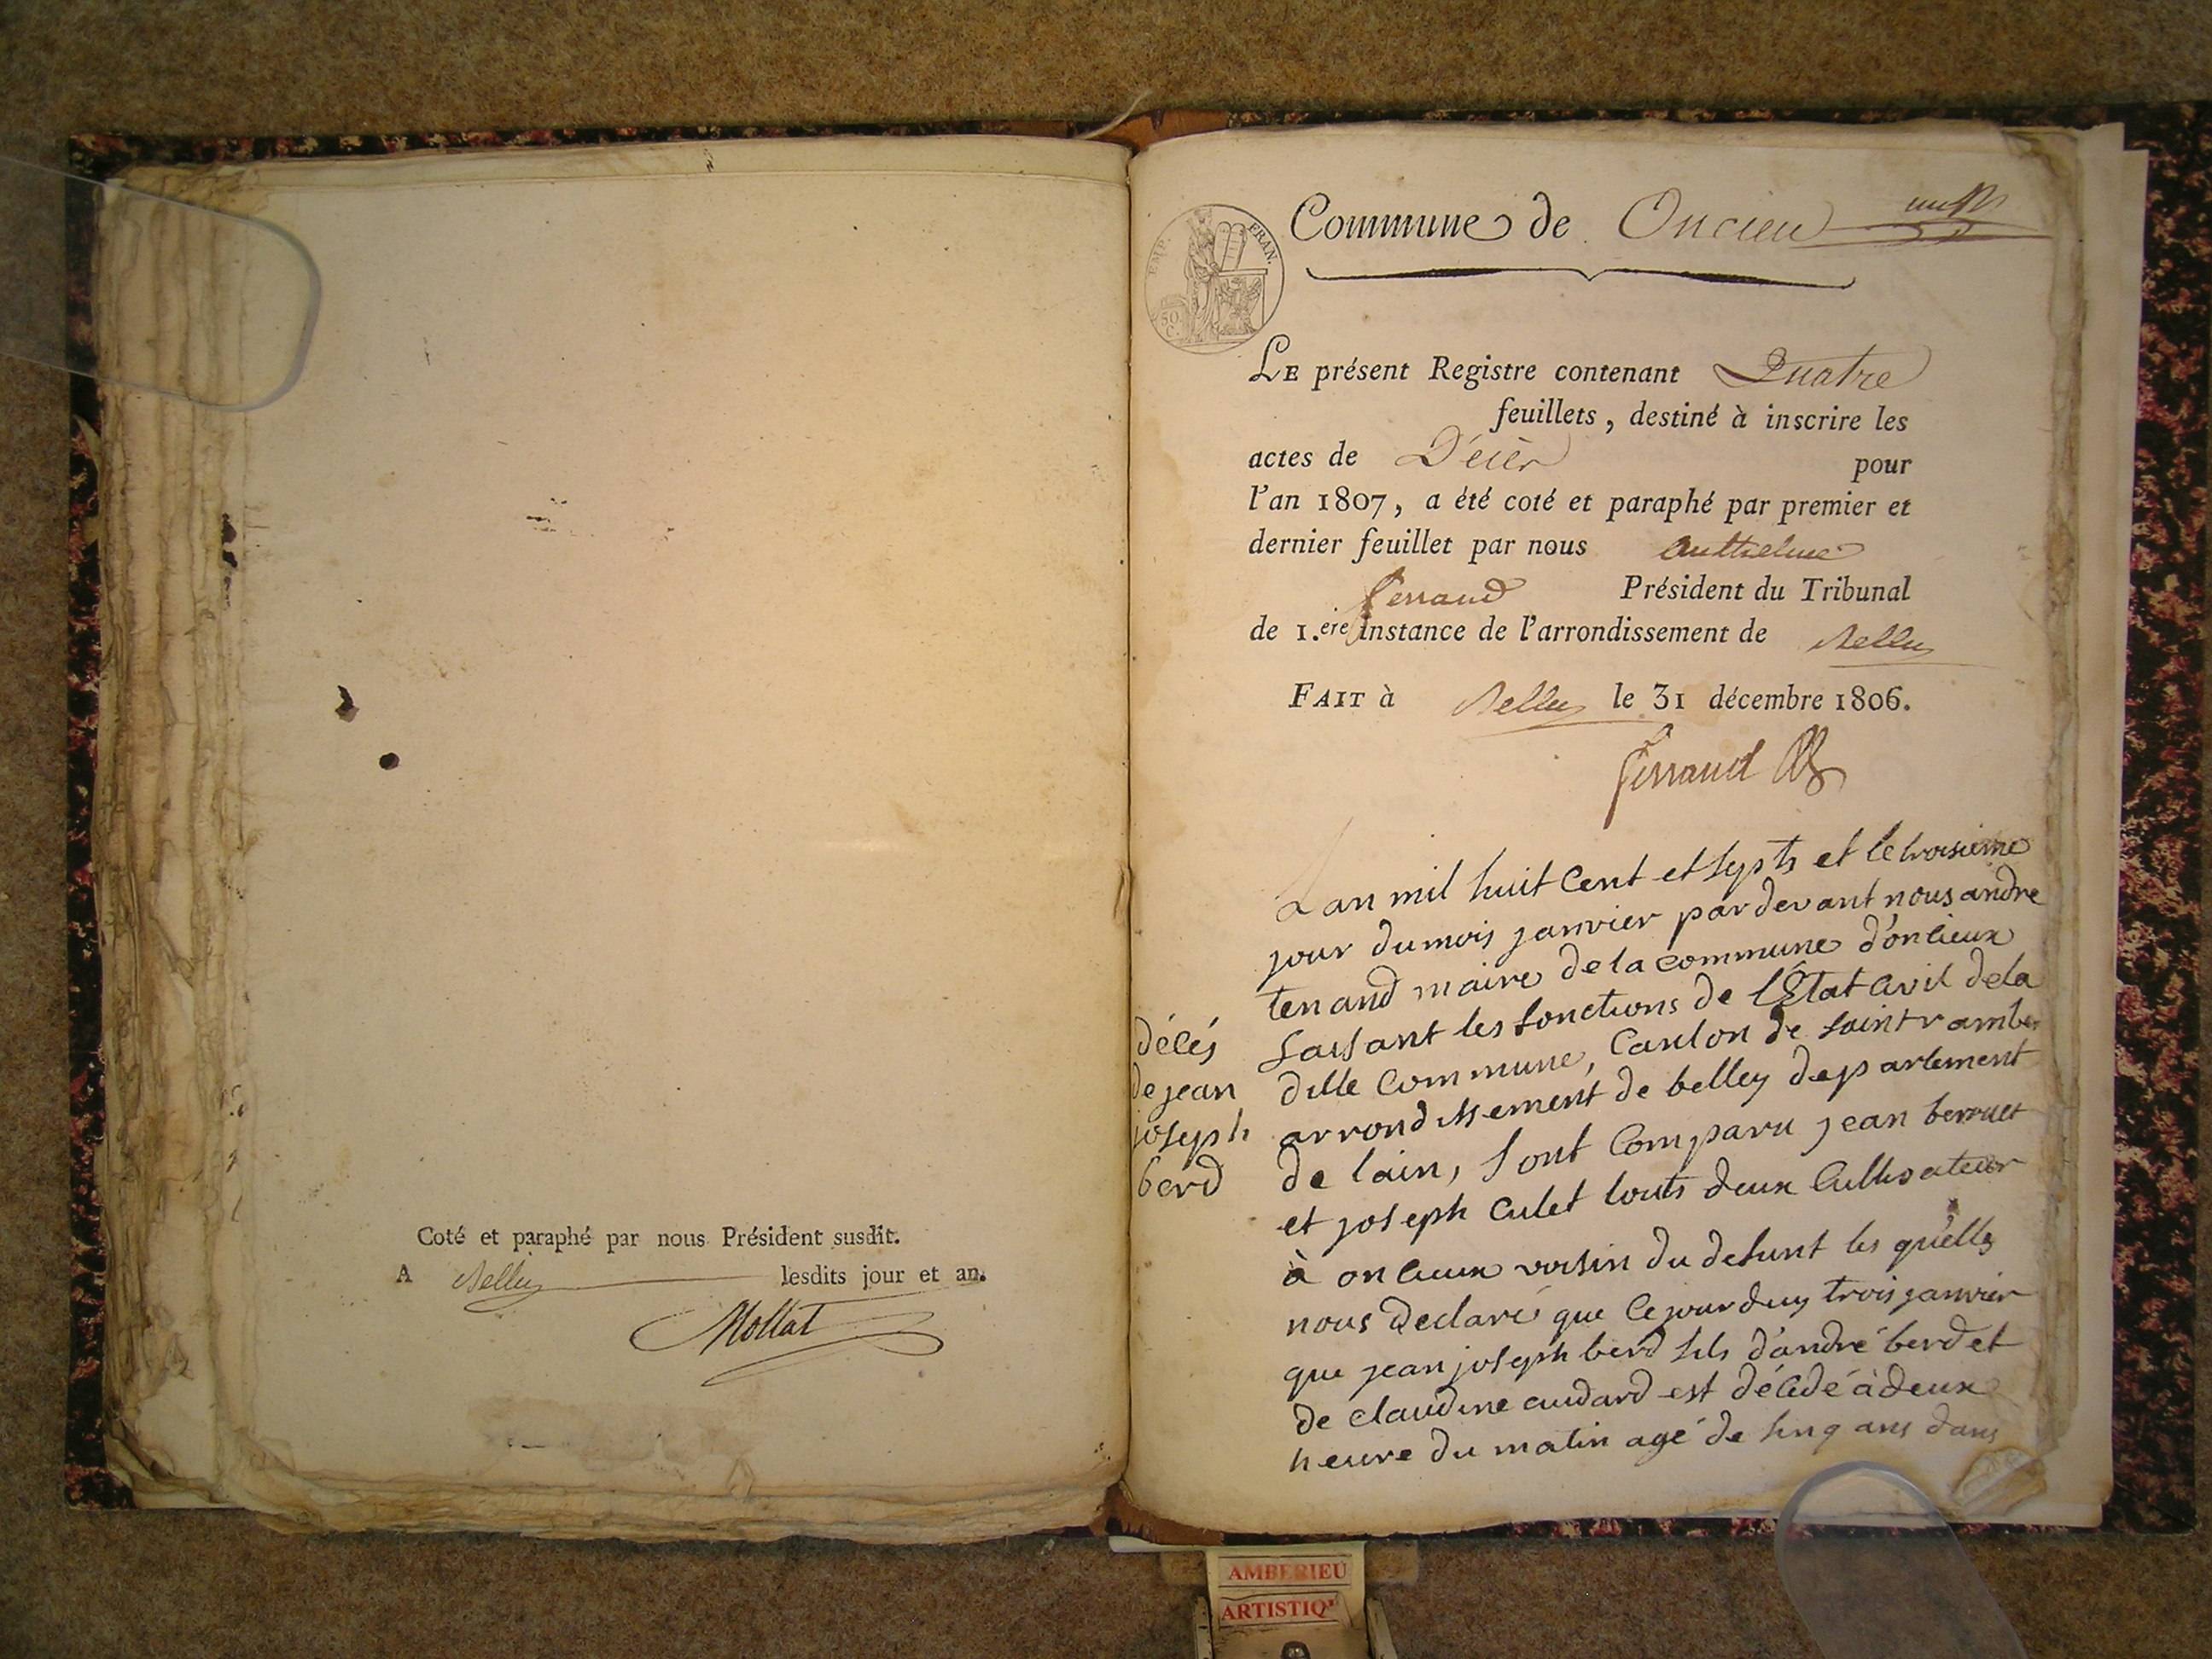 Coté et paraphé par nous Président susdit.
A Belley lesdits jour et an.
Mollat
EMP. FRAN.
50
C.
Commune de Oncieu
LE présent Registre contenant Quatre
feuillets, destiné à inscrire les
actes de Décès pour
l'an 1807, a été coté et paraphé par premier et
dernier feuillet par nous Anthelme
ferraud Président du Tribunal
de 1.ere Instance de l'arrondissement de Belley
FAIT à Belley le 31 décembre 1806.
ferraud
Lan mil huit Cent et septs et le troisieme
jour du mois janvier par devant nous andre
tenand maire de la commune d'onlieux
faisant les fonctions de l'État Civil de la
ditte Commune, Canton de saint ramber
arrondissement de belley departement
de lain, sont Comparu jean berruet
et joseph Culet touts deux Cultivateur
à onlieux voisin du defunt les quells
nous declaré que Cejourduy trois janvier
que jean joseph berd fils d'andré berd et
de Claudine audard est décédé à deux
heure du matin agé de sinq ans dans
décés
de jean
joseph
berd
AMBERIEU
ARTISTIQ'